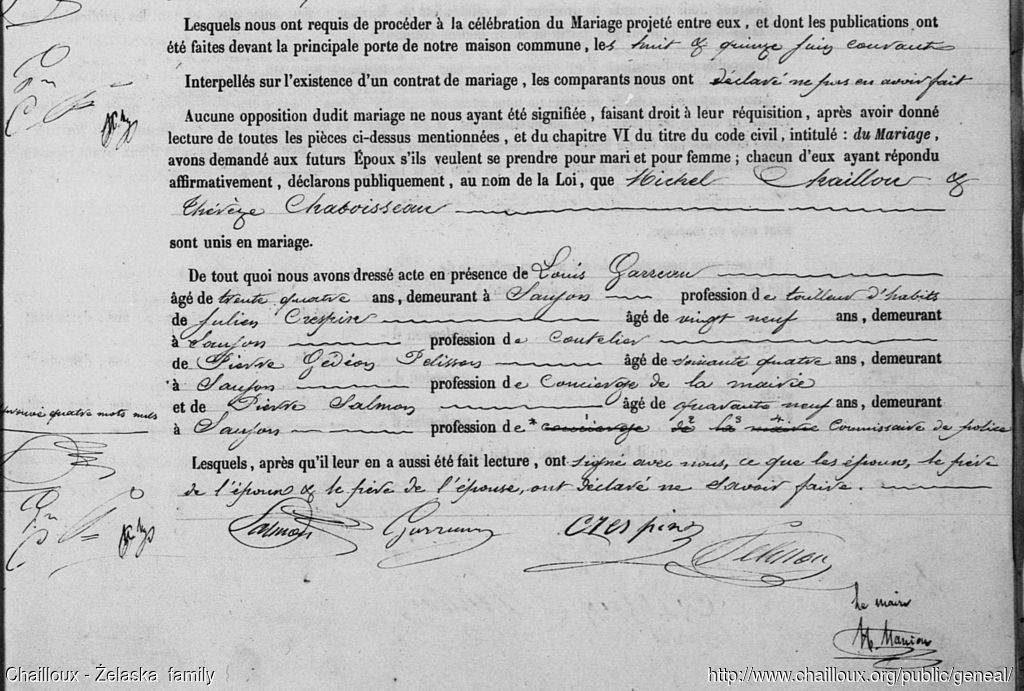 Lesquels nous ont requis de procéder à la célébration du Mariage projeté entre eux, et dont les publications ont
été faites devant la principale porte de notre maison commune, les huit & quinze juin courant
Interpellés sur l'existence d'un contrat de mariage, les comparants nous ont déclaré ne pas en avoir fait
Aucune opposition dudit mariage ne nous ayant été signifiée, faisant droit à leur réquisition, après avoir donné
lecture de toutes les pièces ci-dessus mentionnées, et du chapitre VI du titre du code civil, intitulé : du Mariage,
avons demandé aux futurs Époux s'ils veulent se prendre pour mari et pour femme ; chacun d'eux ayant répondu
affirmativement, déclarons publiquement, au nom de la Loi, que Michel Chaillou &
Thérèze Chaboisseau
sont unis en mariage.
De tout quoi nous avons dressé acte en présence de Louis Garreau
âgé de trente quatre ans, demeurant à Saujon profession de tailleur d'habits
de Julien Crespin âgé de vingt neuf ans, demeurant
à Saujon profession de Coutelier
de Pierre Gédéon Pelisson âgé de soixante quatre ans, demeurant
à Saujon profession de Concierge de la mairie
et de Pierre Salmon âgé de quarante neuf ans, demeurant
approuvé quatre mots nuls
à Saujon profession de concierge de la mairie Commissaire de police
Lesquels, après qu'il leur en a aussi été fait lecture, ont signé avec nous, ce que les époux, le père
de l'époux & le père de l'épouse, ont déclaré ne savoir faire.
Salmon Garreau Crespin Pelisson
Le maire
Chailloux - Żelaska family http://www.chailloux.org/public/geneal/